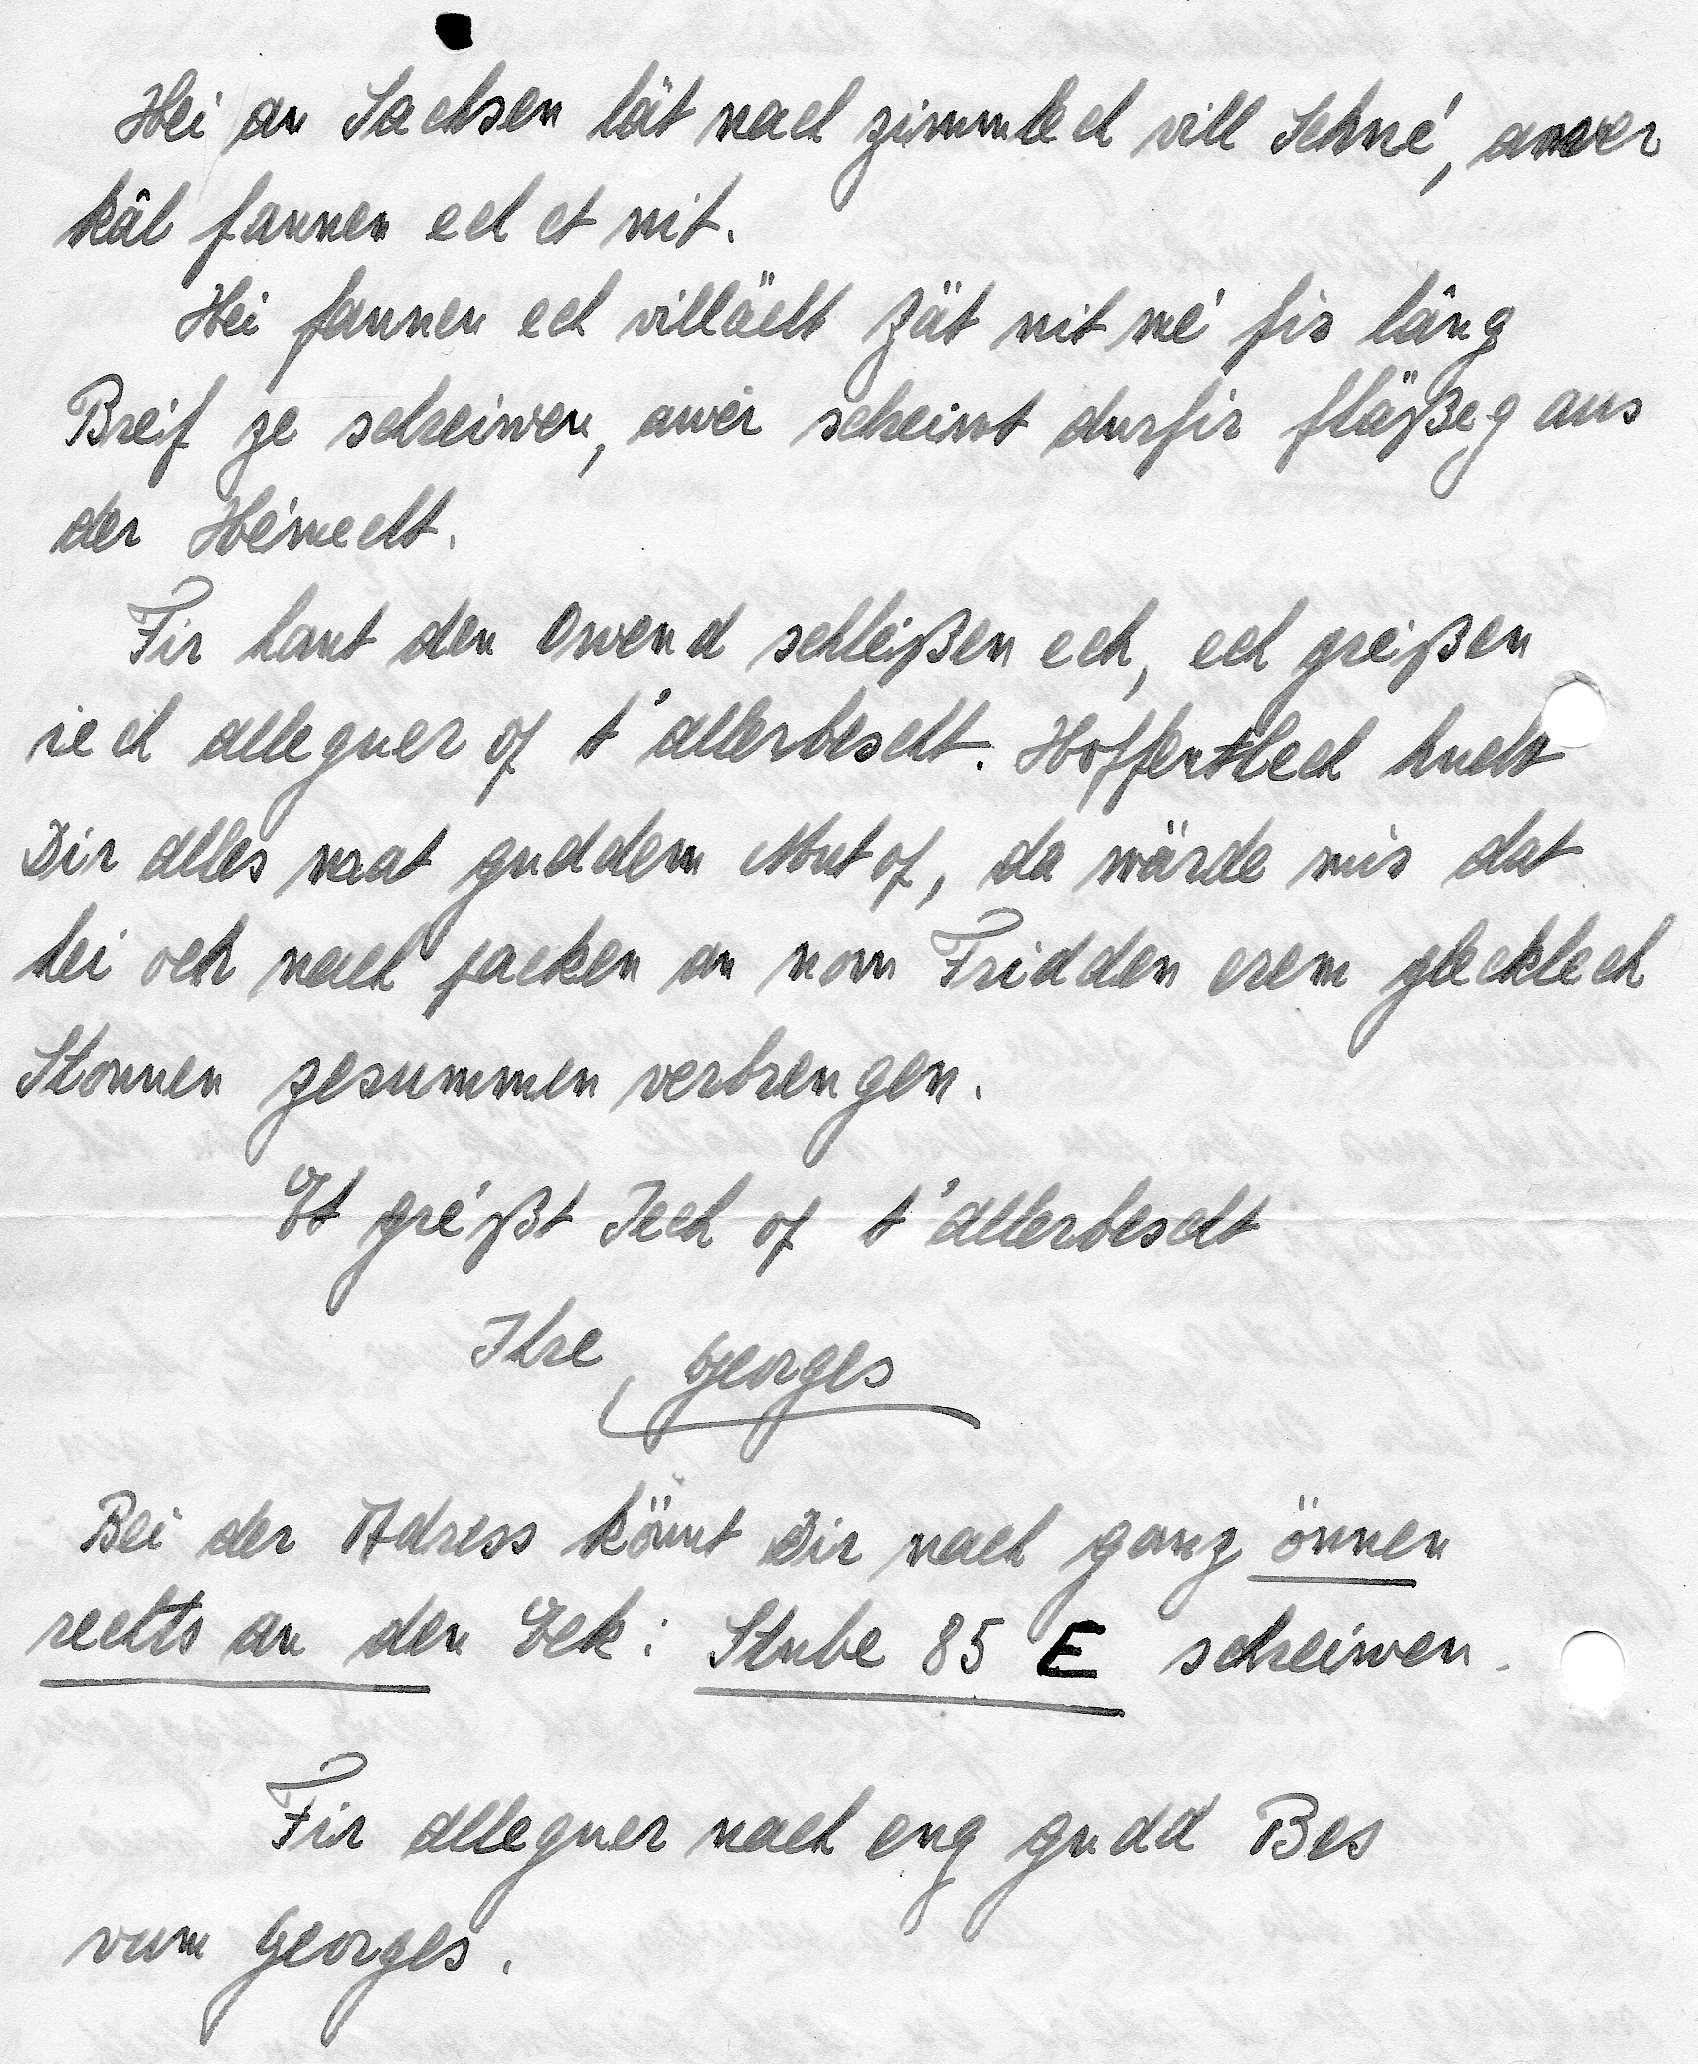 Hei an Sachsen lät nach zimmlech vill Schné, awer
kâl fannen ech et nit.
Hei fannen ech villächt Zät nit mé fir lâng
Breif ze schreiwen, awer schreiwt durfir fläßeg aus
der Hémecht.
Fir haut den Owend schleißen ech, ech greißen
iech alleguer of t'allerbescht. Hoffentlech huelt
Dir alles mat guddem Mut of, da wärde mir dat
hei och nach packen an nom Fridden erem glecklech
Stonnen zesummen verbrengen.
Et gréißt Iech of t'allerbescht
Ihre Georges
Bei der Adress könnt Dir nach ganz önnen
rechts an den Eck: Stube 85 E schreiwen.
Fir alleguer nach eng gudd Bes
vum Georges.